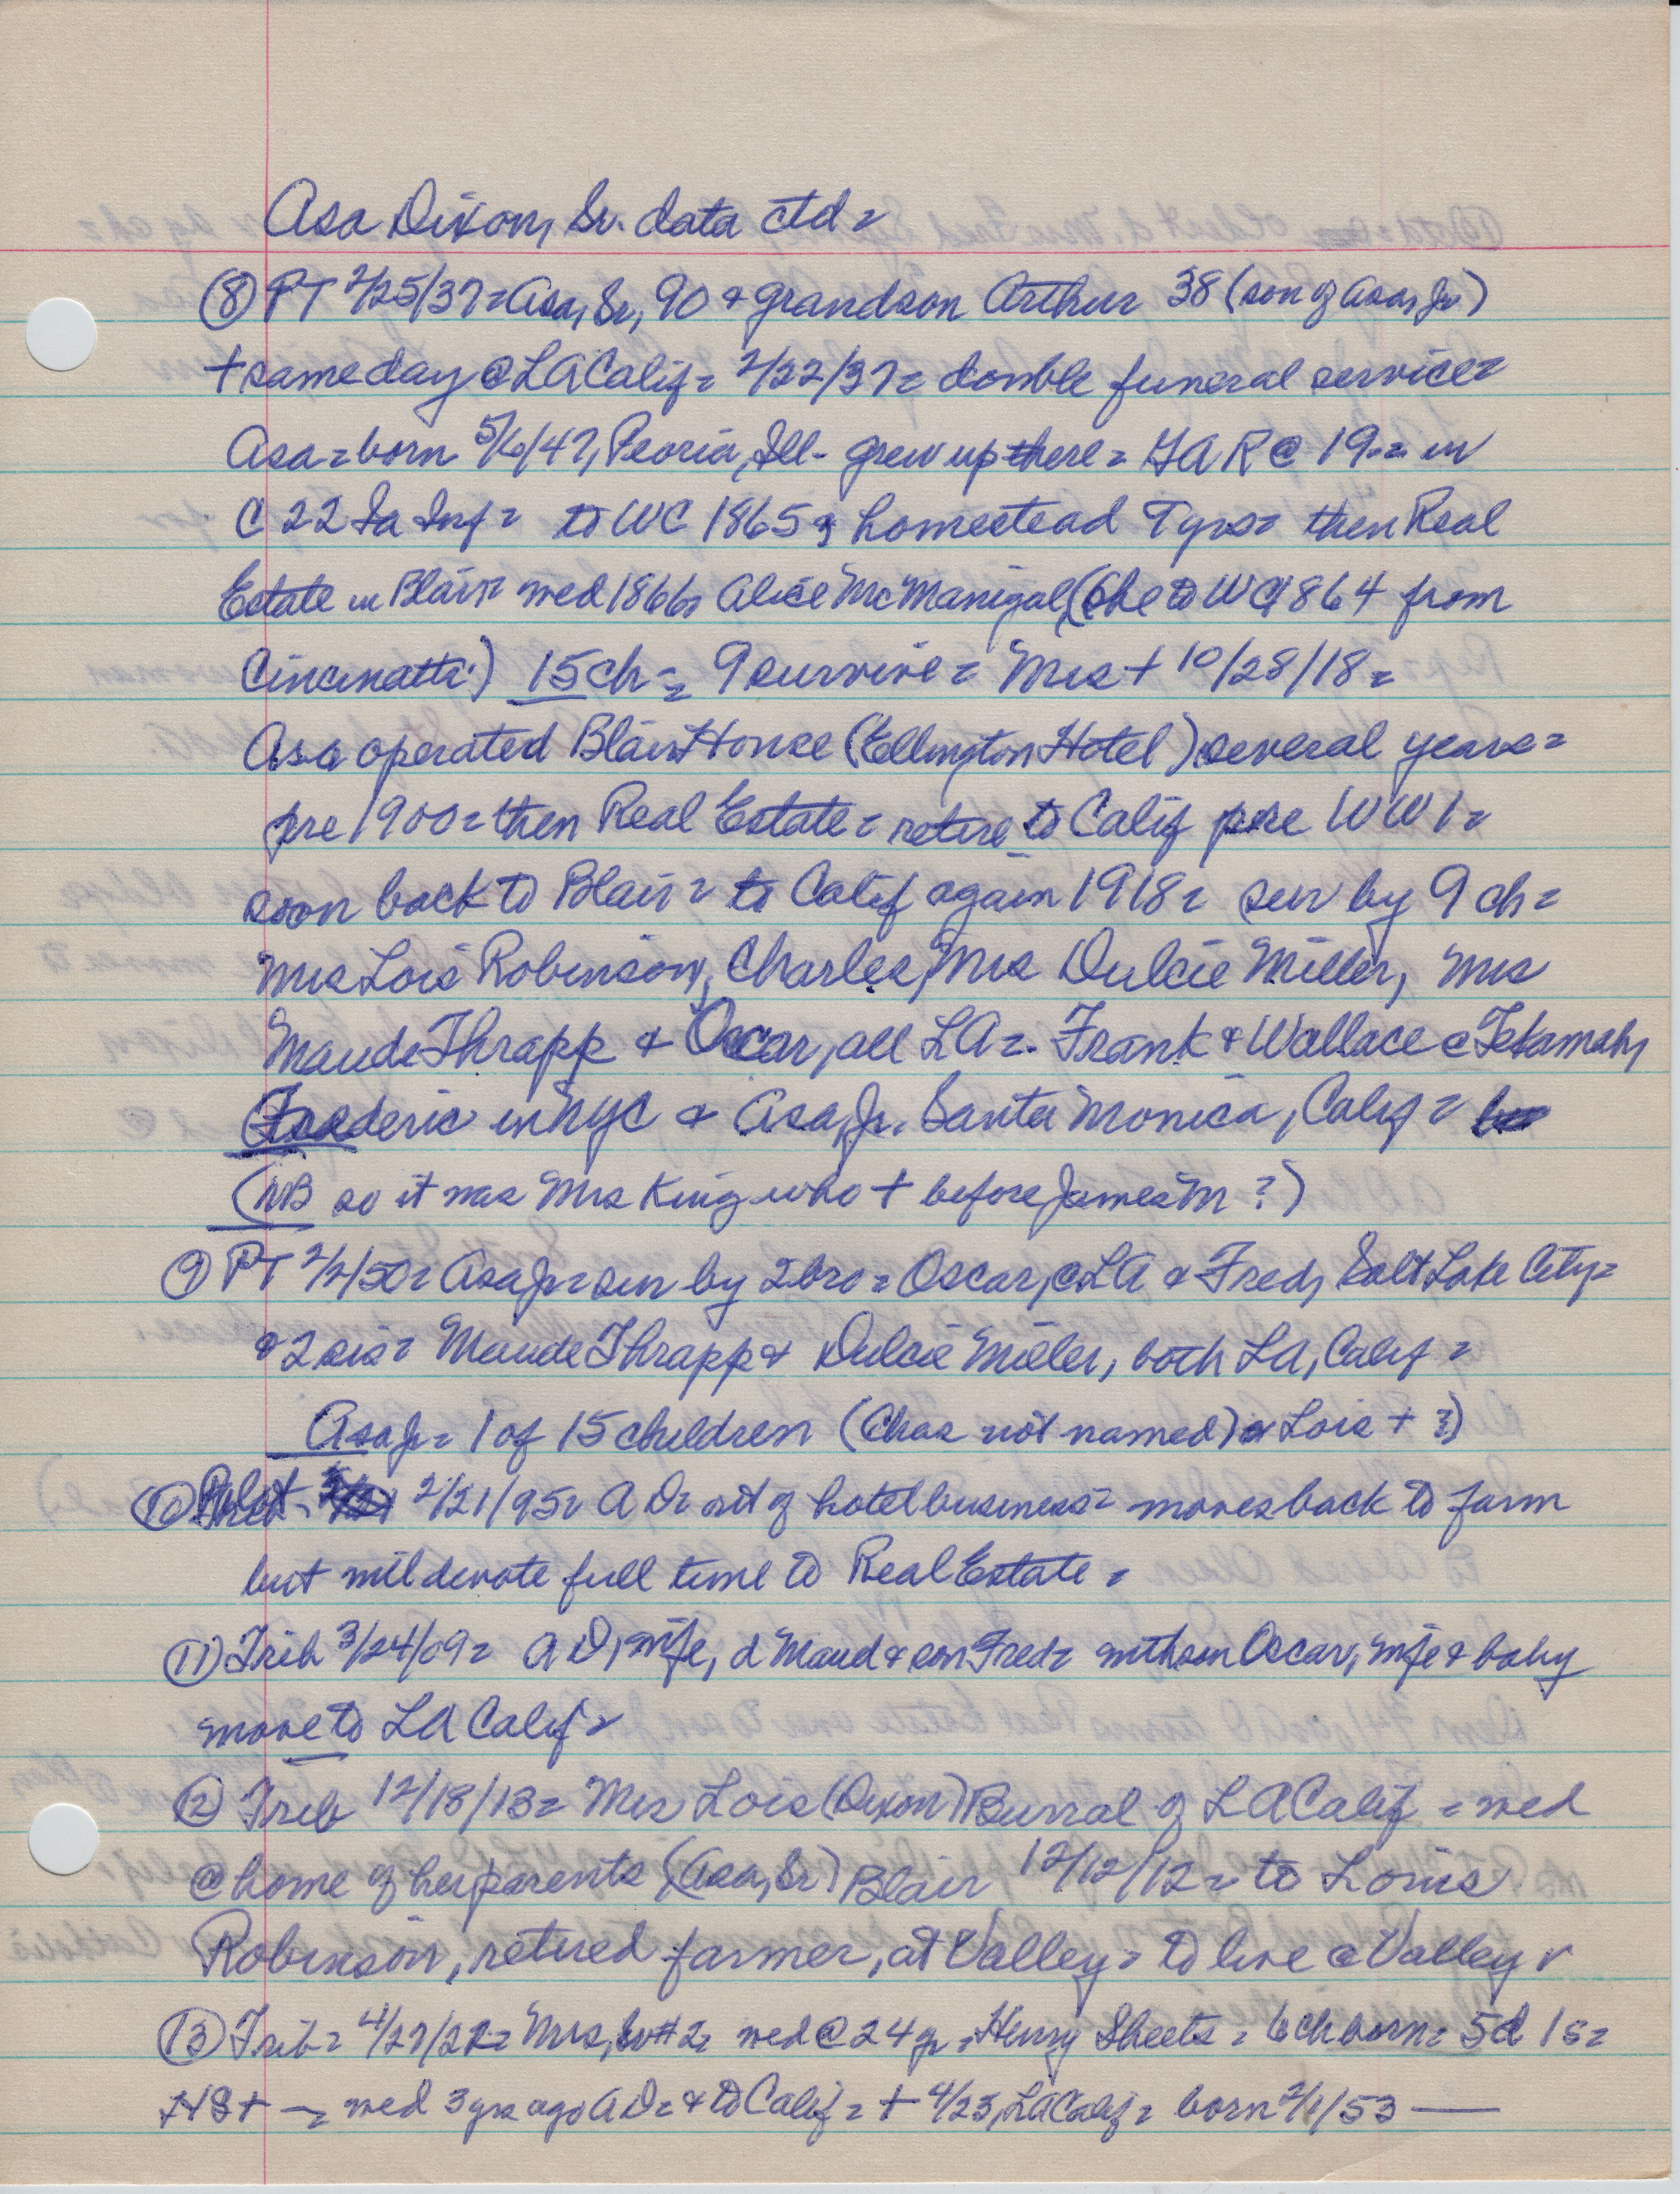 Asa Dixon, Sr. data ctd =
⑧ PT 2/25/37 = Asa, Sr, 90 & grandson Arthur 38 (son of Asa, Jr)
+ same day @ LA Calif = 2/22/37 = double funeral service =
Asa = born 5/6/47, Peoria, Ill - grew up there = GAR @ 19 = in
C 22 Ia Inf = to WC 1865 & homestead 7 yrs = then Real
Estate in Blair = wed 1866 = Alice McManigal, (she to WC 1864 from
Cincinatti) 15 ch = 9 survive = Mrs + 10/28/18 =
Asa operated Blair House (Ellington Hotel) several years =
pre 1900 = then Real Estate = retire to Calif pre WW1 =
soon back to Blair = to Calif again 1918 = sur by 9 ch =
Mrs Lois Robinson, Charles, Mrs Dulcie Miller, Mrs
Maude Thrapp & Oscar, all LA = Frank & Wallace @ Tekamah,
Frederic in NYC & Asa, Jr. Santa Monica, Calif =
(NB so it was Mrs King who + before James M ?)
⑨ PT 2/2/50 = Asa Jr = sur by 2 bro = Oscar, @ LA & Fred, Salt Lake City =
& 2 sis = Maude Thrapp & Dulcie Miller, both LA, Calif =
Asa Jr = 1 of 15 children (Chas not named) & Lois + ?)
⑩ 2/21/95 = AD = out of hotel business = moves back to farm
but will devote full time to Real Estate =
⑪ Trib 3/24/09 = AD, wife, d Maud & son Fred = with son Oscar, wife & baby
move to LA Calif =
⑫ Trib 12/18/13 = Mrs Lois (Dixon) Burral of LA Calif = wed
@ home of her parents (Asa, Sr) Blair 12/12/12 = to Louis
Robinson, retired farmer, at Valley = to live @ Valley
⑬ Trib = 4/27/22 = Mrs, Sr #2 = wed @ 24 yr = Henry Sheets = 6 ch born = 5d 1s =
HS + — = wed 3 yrs ago AD = & to Calif = + 4/23, LA Calif = born 2/1/53 —